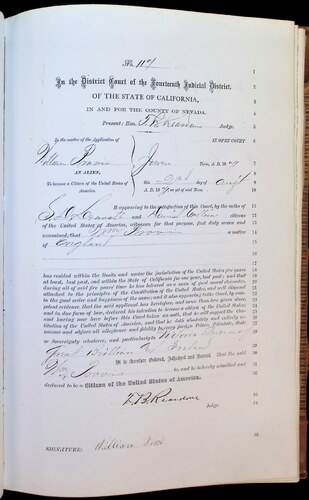 No. 117
In the District Court of the Fourteenth Judicial District,
OF THE STATE OF CALIFORNIA,
IN AND FOR THE COUNTY OF NEVADA.
Present: Hon. T. B. Reardan Judge.
In the matter of the Application of
IN OPEN COURT
William
Term, A. D. 18
AN ALIEN,
this day of
To become a Citizen of the United States of America.
A. D. 18
It appearing to the satisfaction of this Court, by the oaths of
and citizens
of the United States, witnesses for that purpose, first duly sworn and
examined, that Wm a native
of England
has resided within the limits and under the jurisdiction of the United States five years
at least, last past, and within the State of California for one year, last past; and that
during all of said five years' time he has behaved as a man of good moral character,
attached to the principles of the Constitution of the United States, and well disposed
to the good order and happiness of the same; and it also appearing to the Court, by com-
petent evidence, that the said applicant has heretofore, and more than two years since,
and in due form of law, declared his intention to become a citizen of the United States;
and having now here before this Court taken an oath, that he will support the Con-
stitution of the United States, and that he doth absolutely and entirely re-
nounce and abjure all allegiance and fidelity to every foreign Prince, Potentate, State
or Sovereignty whatever, and particularly to
Great Britain &
It is therefore Ordered, Adjudged and Decreed, That the said
Wm be, and is hereby admitted and
declared to be a Citizen of the United States of America.
T. B. Reardan
Judge.
SIGNATURE: William